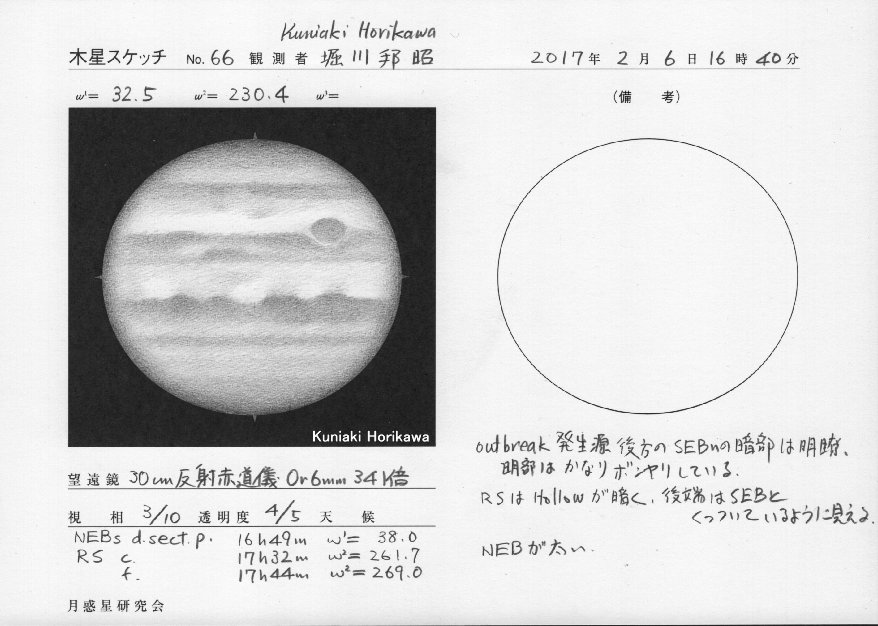 Kuniaki Horikawa
木星スケッチ No. 66 観測者 堀川邦昭 2017年 2月 6日 16時 40分
ω¹= 32.5 ω²= 230.4 ω³=
(備 考)
Kuniaki Horikawa
outbreak 発生源 後方の SEBnの暗部は明瞭、
明部は かなりボンヤリしている.
RSは Hollowが暗く、後端はSEBと
くっついているように見える.
NEBが太い.
望遠鏡 30cm反射赤道儀 Or6mm 341倍
視相 3/10 透明度 4/5 天候
NEBs d.sect.p. 16h49m ω¹= 38.0
RS c. 17h32m ω²= 261.7
f. 17h44m ω²= 269.0
月惑星研究会